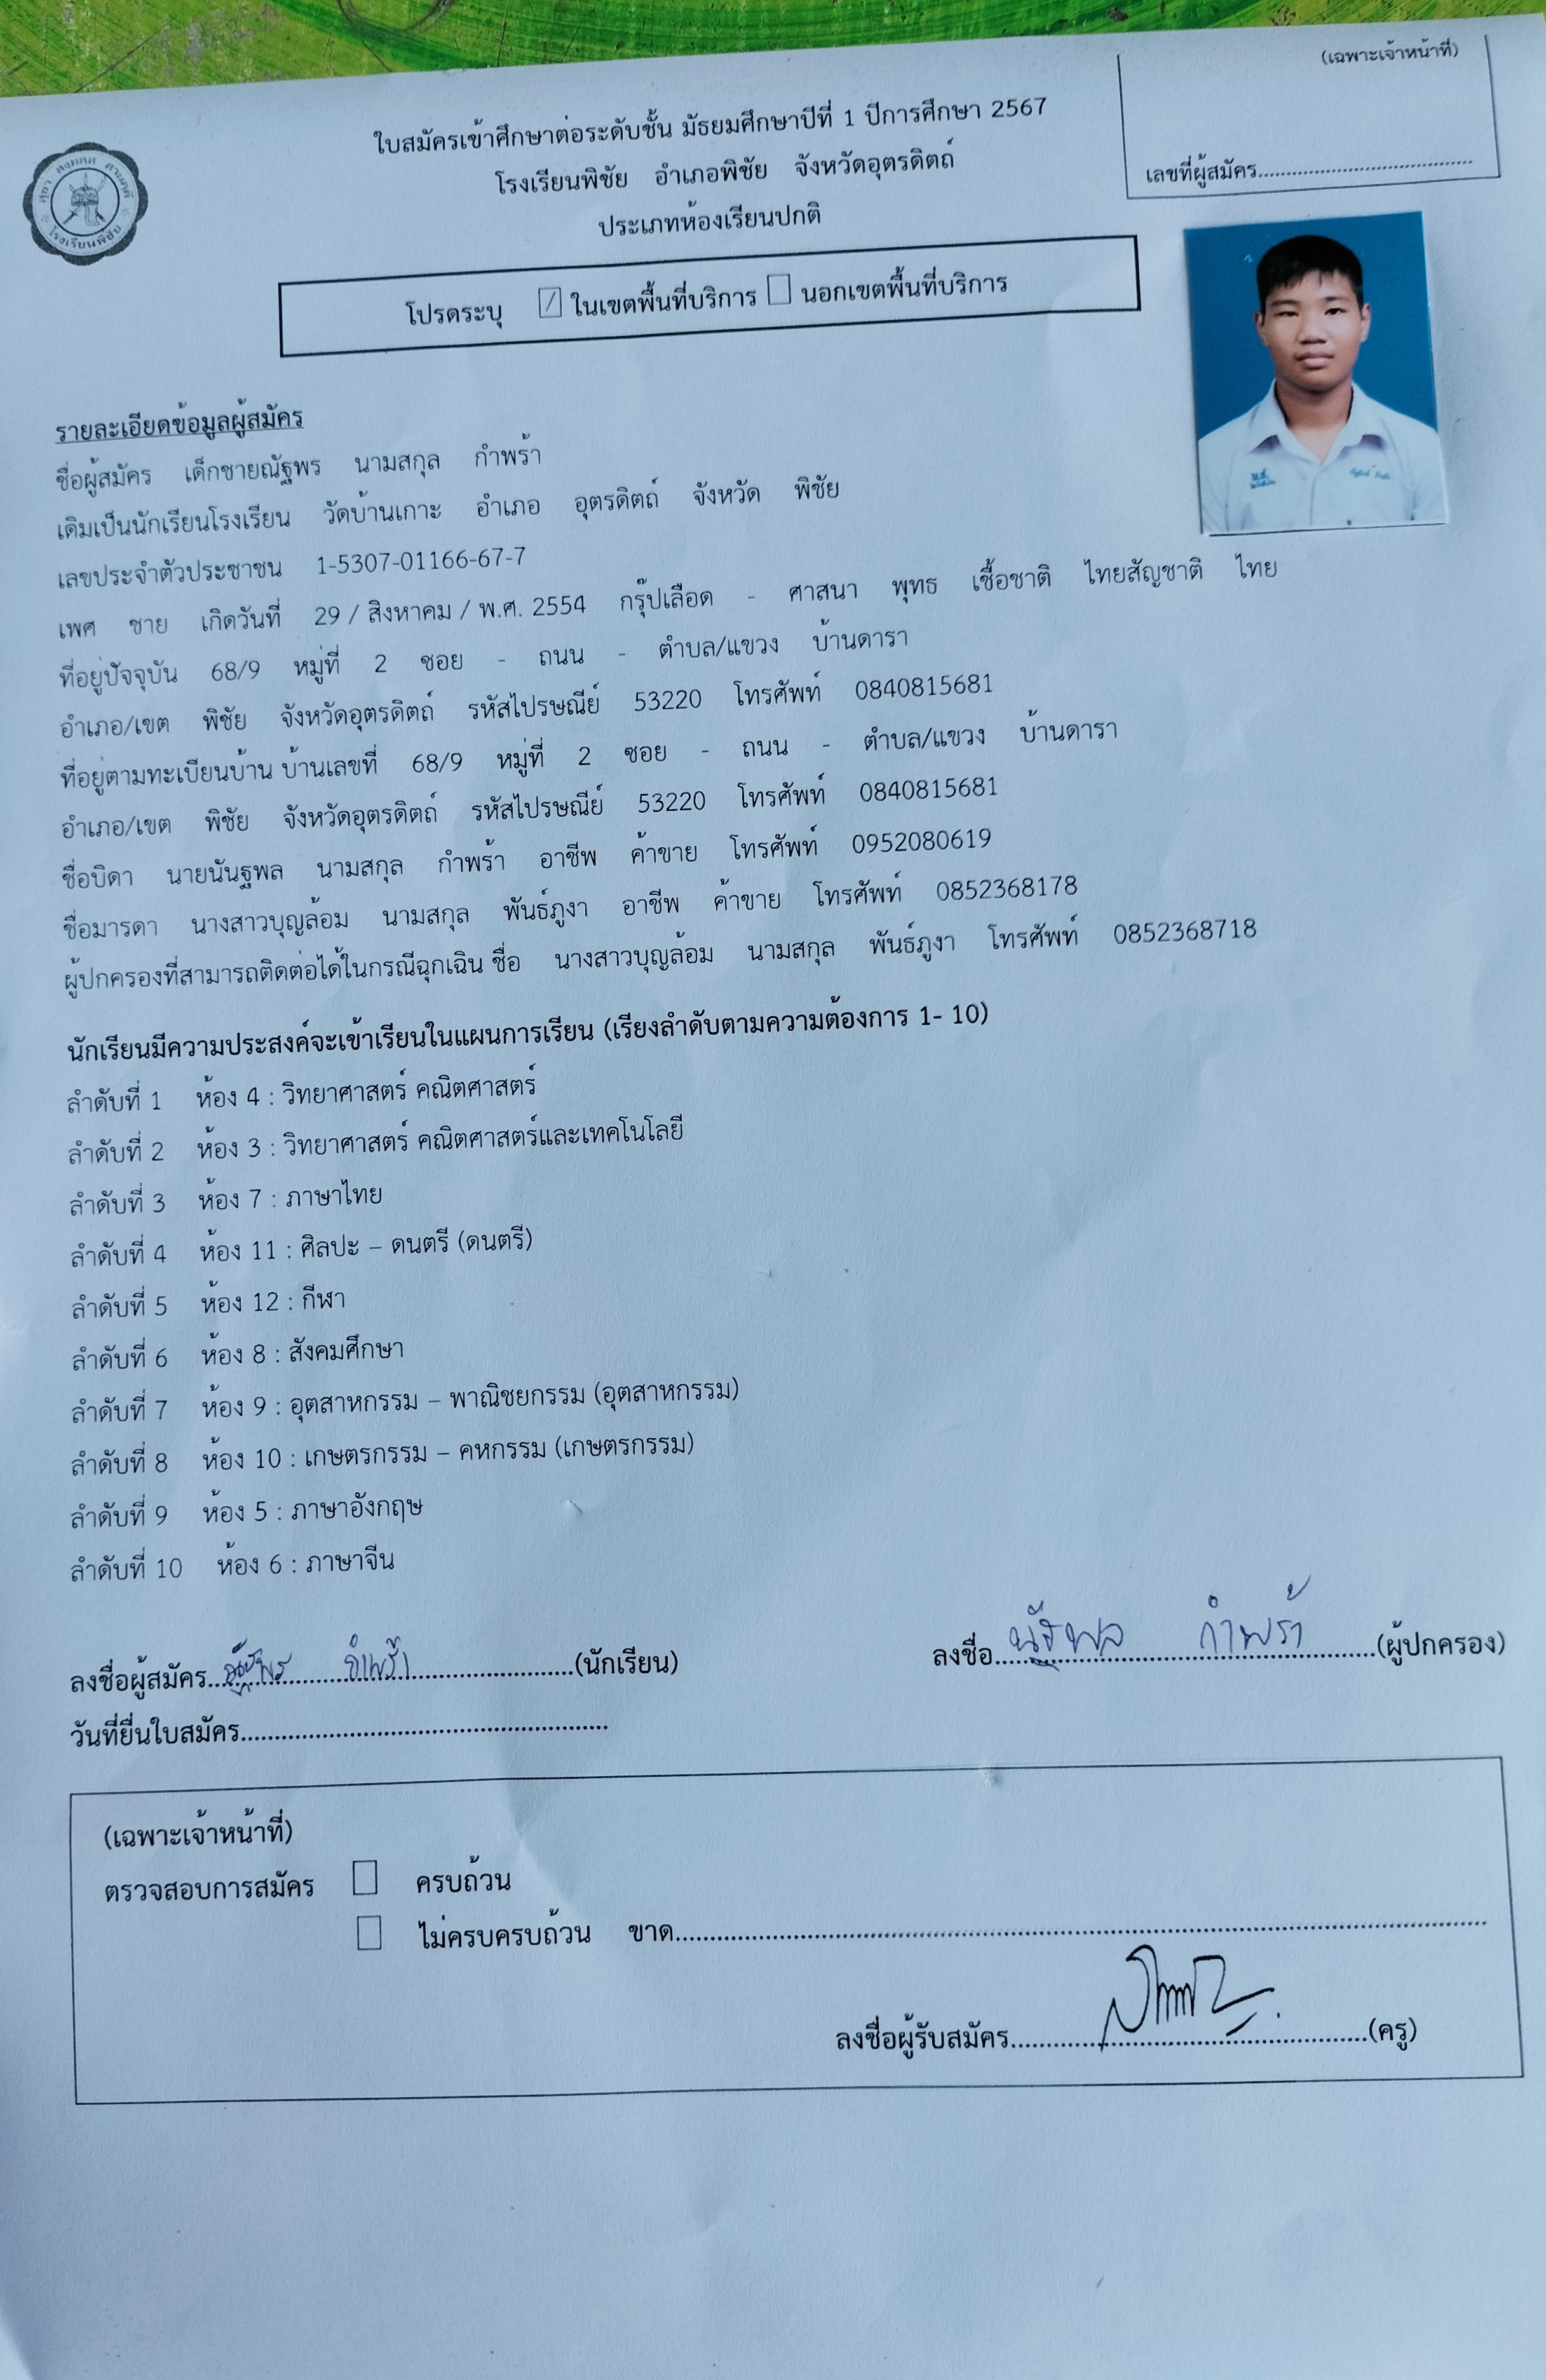 (เฉพาะเจ้าหน้าที่)
เลขที่ผู้สมัคร........................................
ใบสมัครเข้าศึกษาต่อระดับชั้น มัธยมศึกษาปีที่ 1 ปีการศึกษา 2567
โรงเรียนพิชัย อำเภอพิชัย จังหวัดอุตรดิตถ์
ประเภทห้องเรียนปกติ
โรงเรียนพิชัย
โปรดระบุ ☑ ในเขตพื้นที่บริการ ☐ นอกเขตพื้นที่บริการ
รายละเอียดข้อมูลผู้สมัคร
ชื่อผู้สมัคร เด็กชายณัฐพร นามสกุล กำพร้า
เดิมเป็นนักเรียนโรงเรียน วัดบ้านเกาะ อำเภอ อุตรดิตถ์ จังหวัด พิชัย
เลขประจำตัวประชาชน 1-5307-01166-67-7
เพศ ชาย เกิดวันที่ 29 / สิงหาคม / พ.ศ. 2554 กรุ๊ปเลือด - ศาสนา พุทธ เชื้อชาติ ไทยสัญชาติ ไทย
ที่อยู่ปัจจุบัน 68/9 หมู่ที่ 2 ซอย - ถนน - ตำบล/แขวง บ้านดารา
อำเภอ/เขต พิชัย จังหวัดอุตรดิตถ์ รหัสไปรษณีย์ 53220 โทรศัพท์ 0840815681
ที่อยู่ตามทะเบียนบ้าน บ้านเลขที่ 68/9 หมู่ที่ 2 ซอย - ถนน - ตำบล/แขวง บ้านดารา
อำเภอ/เขต พิชัย จังหวัดอุตรดิตถ์ รหัสไปรษณีย์ 53220 โทรศัพท์ 0840815681
ชื่อบิดา นายนันฐพล นามสกุล กำพร้า อาชีพ ค้าขาย โทรศัพท์ 0952080619
ชื่อมารดา นางสาวบุญล้อม นามสกุล พันธ์ภูงา อาชีพ ค้าขาย โทรศัพท์ 0852368178
ผู้ปกครองที่สามารถติดต่อได้ในกรณีฉุกเฉิน ชื่อ นางสาวบุญล้อม นามสกุล พันธ์ภูงา โทรศัพท์ 0852368718
นักเรียนมีความประสงค์จะเข้าเรียนในแผนการเรียน (เรียงลำดับตามความต้องการ 1- 10)
ลำดับที่ 1 ห้อง 4 : วิทยาศาสตร์ คณิตศาสตร์
ลำดับที่ 2 ห้อง 3 : วิทยาศาสตร์ คณิตศาสตร์และเทคโนโลยี
ลำดับที่ 3 ห้อง 7 : ภาษาไทย
ลำดับที่ 4 ห้อง 11 : ศิลปะ – ดนตรี (ดนตรี)
ลำดับที่ 5 ห้อง 12 : กีฬา
ลำดับที่ 6 ห้อง 8 : สังคมศึกษา
ลำดับที่ 7 ห้อง 9 : อุตสาหกรรม – พาณิชยกรรม (อุตสาหกรรม)
ลำดับที่ 8 ห้อง 10 : เกษตรกรรม – คหกรรม (เกษตรกรรม)
ลำดับที่ 9 ห้อง 5 : ภาษาอังกฤษ
ลำดับที่ 10 ห้อง 6 : ภาษาจีน
ลงชื่อผู้สมัคร...ณัฐพร กำพร้า...(นักเรียน) ลงชื่อ...นัฐพล กำพร้า...(ผู้ปกครอง)
วันที่ยื่นใบสมัคร......................................................
(เฉพาะเจ้าหน้าที่)
ตรวจสอบการสมัคร ☐ ครบถ้วน
☐ ไม่ครบครบถ้วน ขาด......................................................
ลงชื่อผู้รับสมัคร......................................................(ครู)